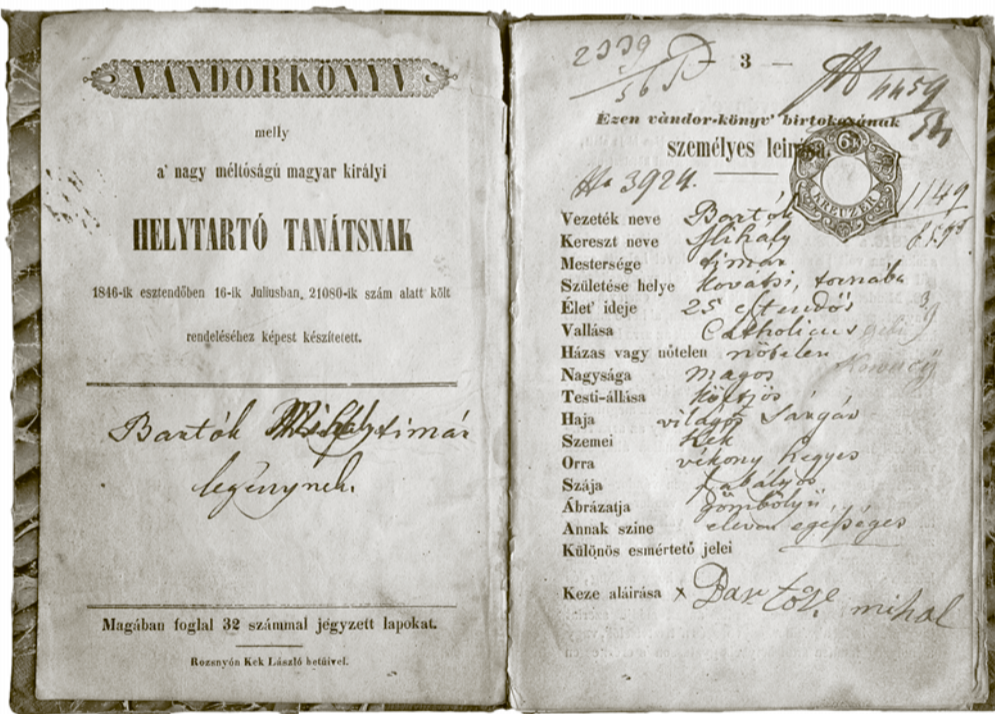 VÁNDORKÖNYV
melly
a' nagy méltóságú magyar királyi
HELYTARTÓ TANÁTSNAK
1846-ik esztendőben 16-ik Juliusban, 21080-ik szám alatt költ
rendeléséhez képest készítetett.
Bartók Mihály timár
legénynek.
Magában foglal 32 számmal jegyzett lapokat.
Rozsnyón Kek László betüivel.
2339
— 3 —
4459
Ezen vándor-könyv' birtokosának
személyes leirása.
6 K
KREUZER
3924.
1149
Vezeték neve Bartók
Kereszt neve Mihály
Mestersége timár
Születése helye Kovátsi, tornába
Élet' ideje 25 esztendős
Vallása Catholicus
Házas vagy nőtelen nőtelen
Nagysága magos
Testi-állása
Haja világos Sárgás
Szemei Kék
Orra vékony hegyes
Szája szabályos
Ábrázatja gömbölyű,
Annak szine eleven egésséges
Különös esmértető jelei
Keze aláirása x mihal